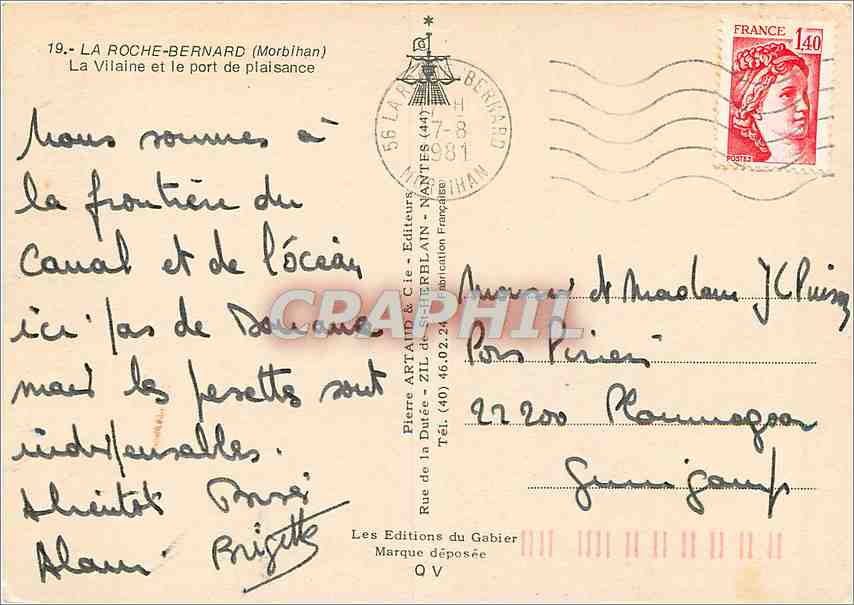 19.- LA ROCHE-BERNARD (Morbihan)
La Vilaine et le port de plaisance
Nous sommes à
la frontière du
Canal et de l'océan
ici pas de Douane
mais les pesettes sont
indispensables.
A bientot Bises
Alain Brigitte
56 LA R BERNARD
H
7-8
1981
MORBIHAN
FRANCE 1,40
POSTES
Pierre ARTAUD & Cie - Editeurs
Rue de la Dutée - ZIL de St-HERBLAIN - NANTES (44)
Tél. (40) 46.02.24 Fabrication Française
Monsieur et Madame JC
Pors
22200 Ploumagoar
Guingamp
Les Editions du Gabier
Marque déposée
QV
CRAPHIL